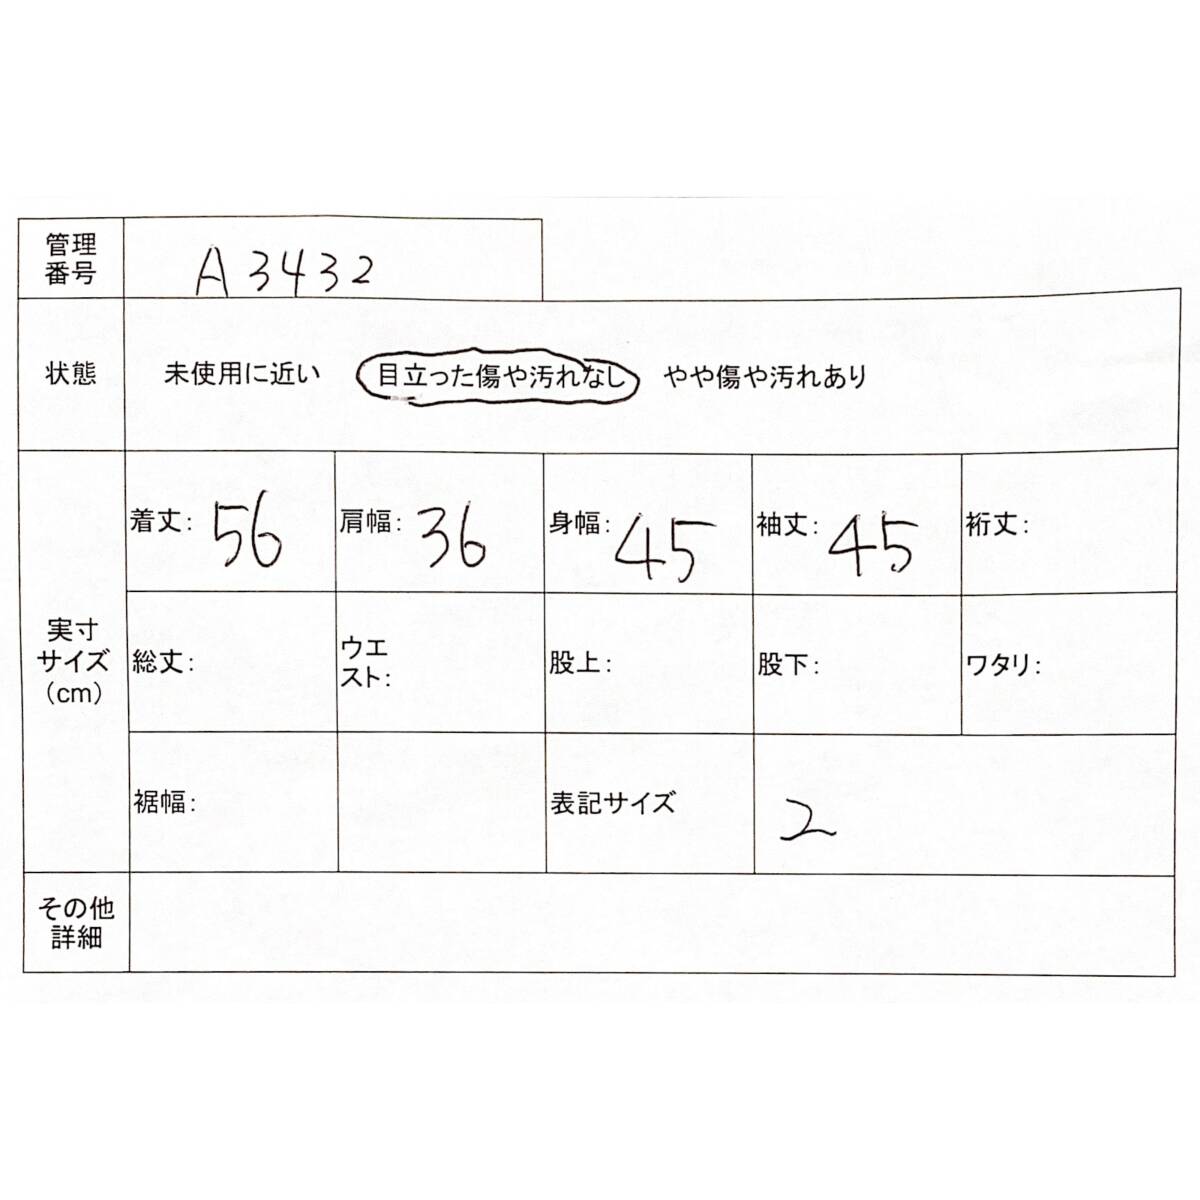 管理
番号
A3432
状態
未使用に近い 目立った傷や汚れなし やや傷や汚れあり
実寸
サイズ
(cm)
着丈: 56
肩幅: 36
身幅: 45
袖丈: 45
裄丈:
総丈:
ウエ
スト:
股上:
股下:
ワタリ:
裾幅:
表記サイズ
2
その他
詳細